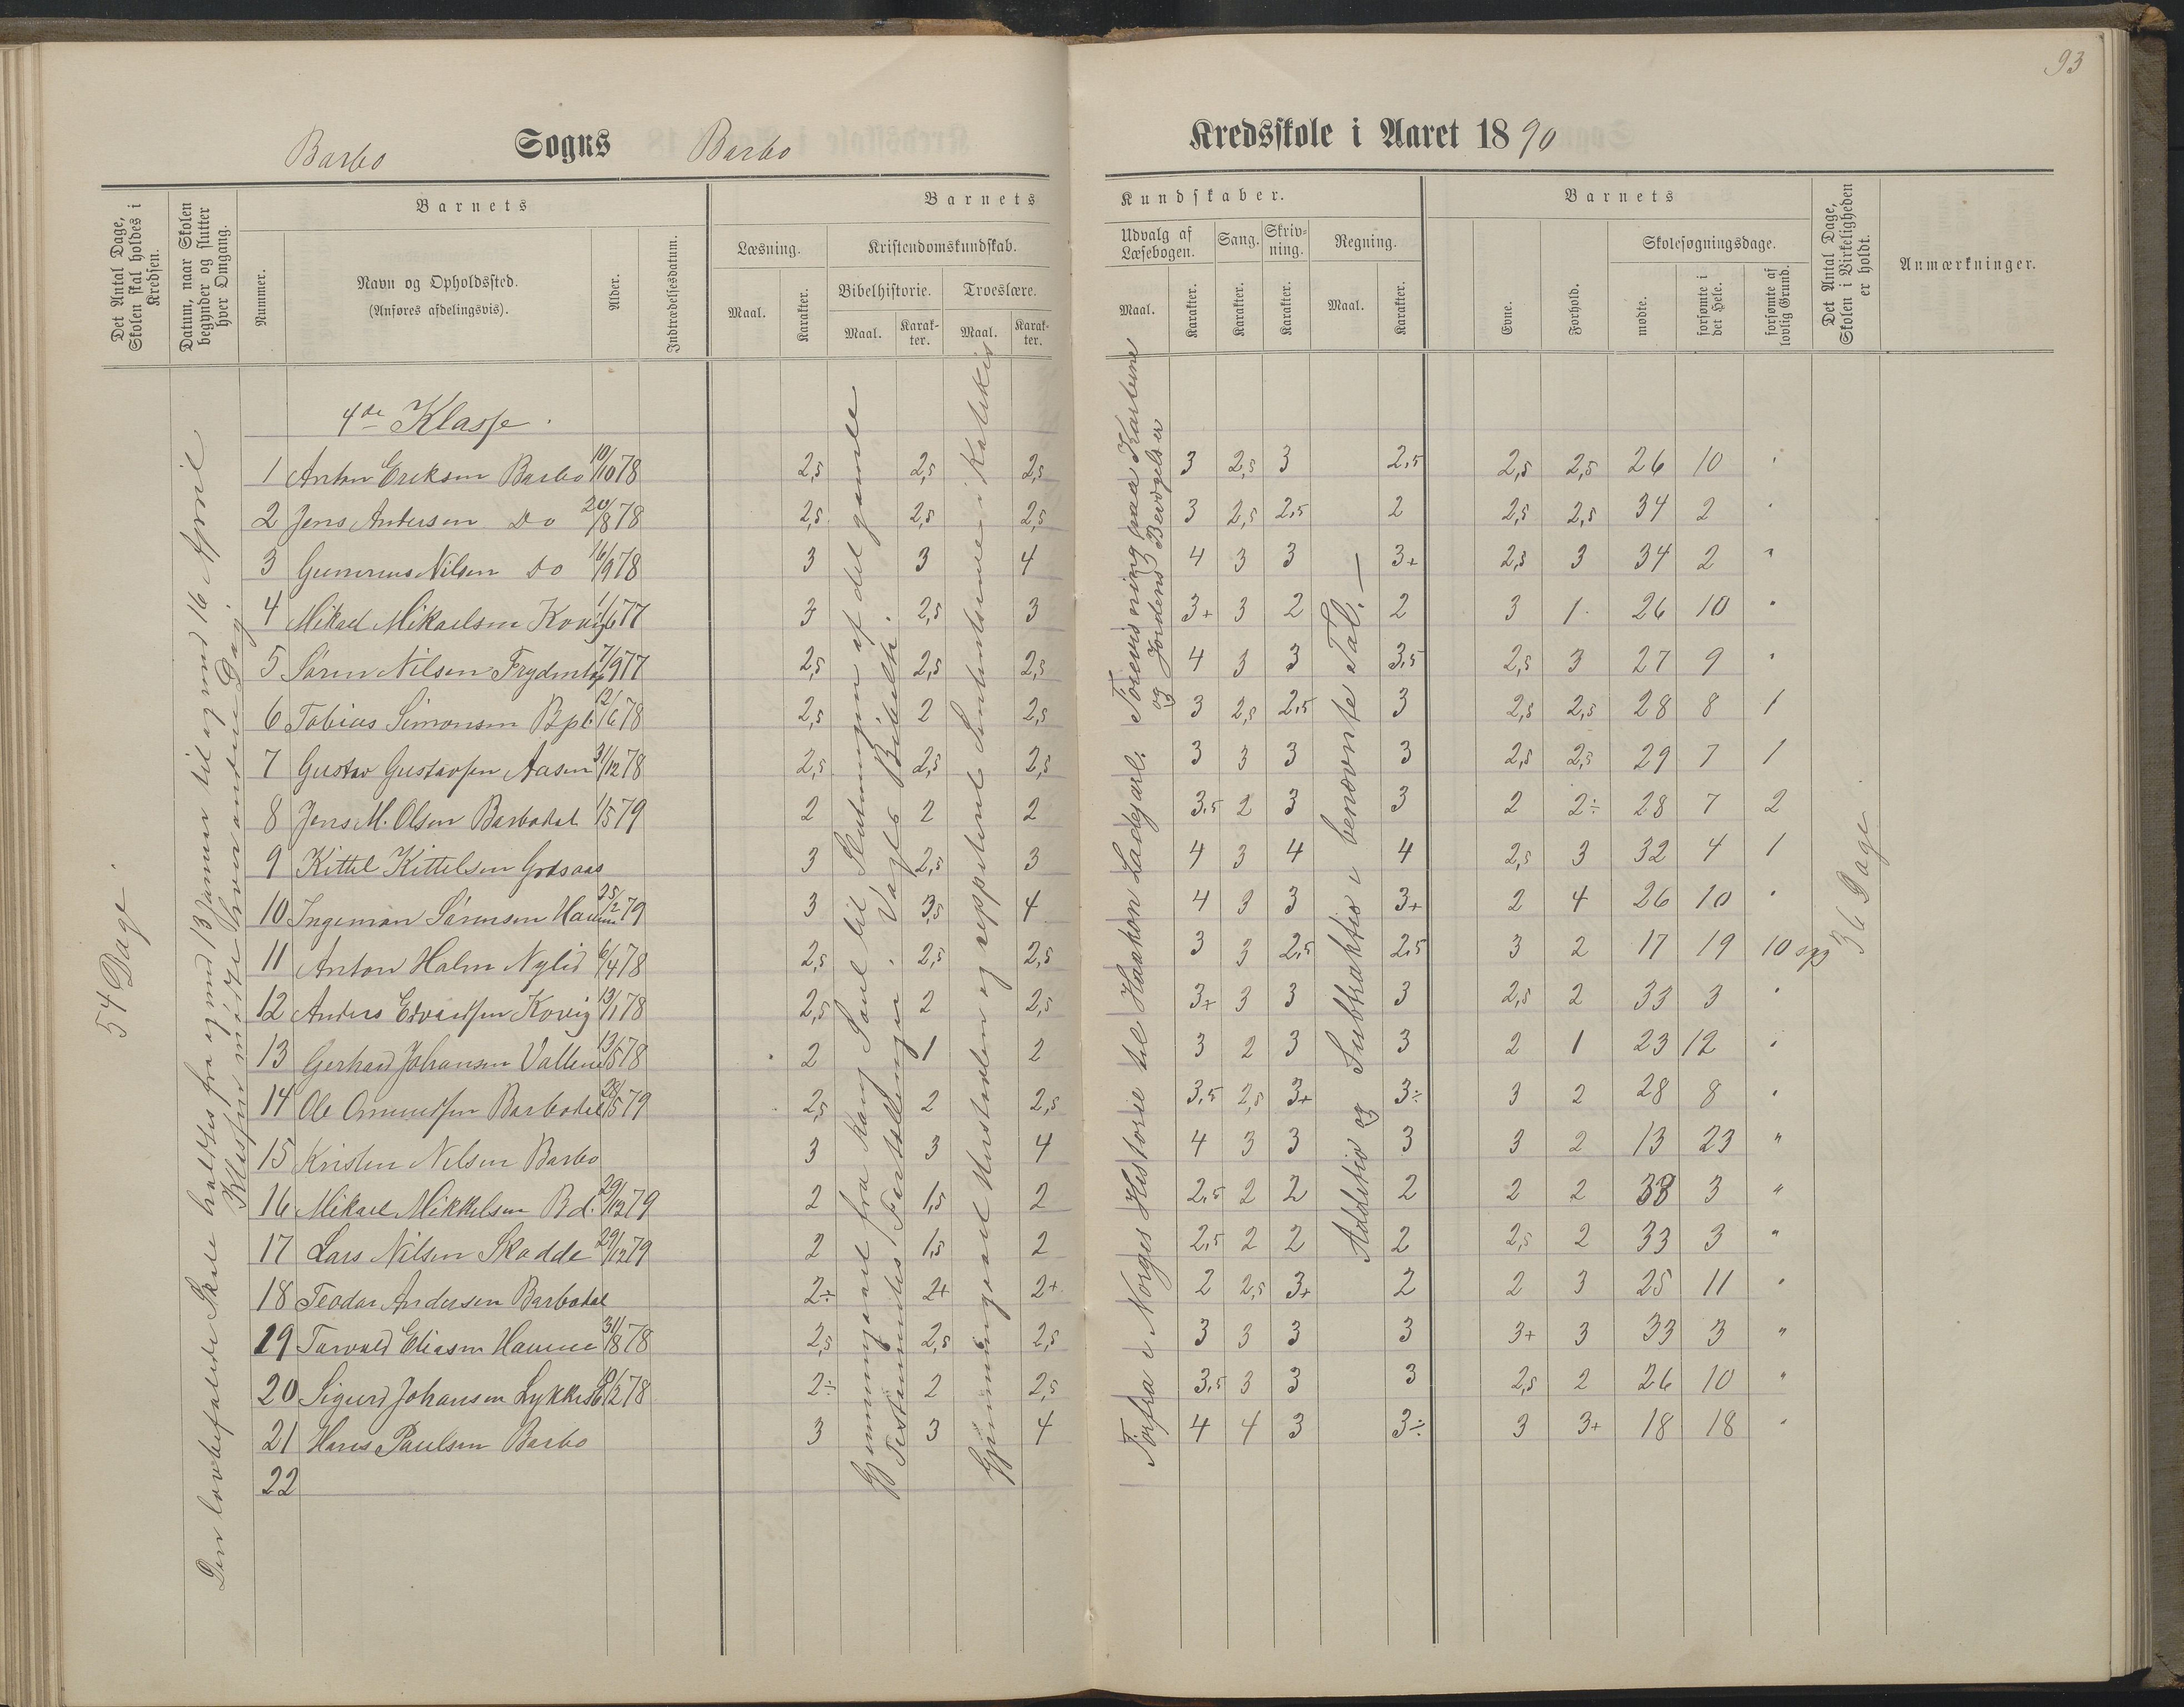 93
Barbo Sogns Barbo Kredsskole i Aaret 1890
Det Antal Dage, Skolen skal holdes i Kredsen.
Datum, naar Skolen begynder og slutter hver Omgang.
Nummer.
Barnets
Navn og Opholdssted.
(Anføres afdelingsvis).
Alder.
Indtrædelsesdatum.
Barnets
Læsning.
Maal.
Karakter.
Kristendomskundskab.
Bibelhistorie.
Maal.
Karak-
ter.
Troeslære.
Maal.
Karak-
ter.
Kundskaber.
Udvalg af
Læsebogen.
Maal.
Karakter.
Sang.
Karakter.
Skriv-
ning.
Karakter.
Regning.
Maal.
Karakter.
Barnets
Evne.
Forhold.
Skolesøgningsdage.
mødte.
forsømte i det Hele.
forsømte af lovlig Grund.
Det Antal Dage, Skolen i Virkeligheden er holdt.
Anmærkninger.
54 Dage.
Den lovbefalede Skole holdtes fra og med 13 Januar til og med 16 April
Klassen mødte hveranden Dag.
Gjennemgaaet fra Kong Saul til Slutningen af det gamle
Testamentes Fortællinger i Vogts Bibelh.
Forfra i Norges Historie til Haakon Ladejarl. Forevisning paa Karterne
og Jordens Bevægelser
Addition og Subtraktion i benævnte Tal. —
36 Dage.
4de Klasse.
1 Anton Eriksen Barbo 10/10 78 2,5 2,5 2,5 3 2,5 3 2,5 2,5 2,5 26 10 "
2 Jens Andersen Do 20/8 78 2,5 2,5 2,5 3 2,5 2,5 2 2,5 2,5 34 2 "
3 Gunerius Nilsen Do 16/9 78 3 3 4 4 3 3 3+ 2,5 3 34 2 "
4 Mikael Mikaelsen Kovig 1/6 77 3 2,5 3 3+ 3 2 2 3 1 26 10 "
5 Søren Nilsen 7/9 77 2,5 2,5 2,5 4 3 3 3,5 2,5 3 27 9 "
6 Tobias Simonsen Bpl. 12/6 78 2,5 2 2,5 3 2,5 2,5 3 2,5 2,5 28 8 1
7 Gustav Gustavsen Aasen 31/12 78 2,5 2,5 2,5 3 3 3 3 2,5 2,5 29 7 1
8 Jens M. Olsen Barbodal 1/5 79 2 2 2 3,5 2 3 3 2 2÷ 28 7 2
9 Kittel Kittelsen 3 2,5 3 4 3 4 4 2,5 3 32 4 1
10 Ingeman Sørensen 25/2 79 3 3,5 4 4 3 3 3+ 2 4 26 10 "
11 Anton Holm Nylid 6/4 78 2,5 2,5 2,5 3 3 2,5 2,5 3 2 17 19 10
12 Anders Edvardsen Kovig 13/1 78 2,5 2 2,5 3+ 3 3 3 2,5 2 33 3 "
13 Gerhard Johansen 13/5 78 2 1 2 3 2 3 3 2 1 23 12 "
14 Ole Omundsen Barbodal 28/5 79 2,5 2 2,5 3,5 2,5 3+ 3÷ 3 2 28 8 "
15 Kristen Nilsen Barbo 3 3 4 4 3 3 3 3 2 13 23 "
16 Mikael Mikkelsen Bd. 29/12 79 2 1,5 2 2,5 2 2 2 2 2 33 3 "
17 Lars Nilsen Skadde 29/12 79 2 1,5 2 2,5 2 2 2 2,5 2 33 3 "
18 Teodor Andersen Barbodal 2÷ 2+ 2+ 2 2,5 3+ 2 2 3 25 11 "
19 Torvald Eliasen 31/8 78 2,5 2,5 2,5 3 3 3 3 3+ 3 33 3 "
20 Sigurd Johansen 78 2÷ 2 2,5 3,5 3 3 3 2,5 2 26 10 "
21 Hans Paulsen Barbo 3 3 4 4 4 3 3÷ 3 3+ 18 18 "
22